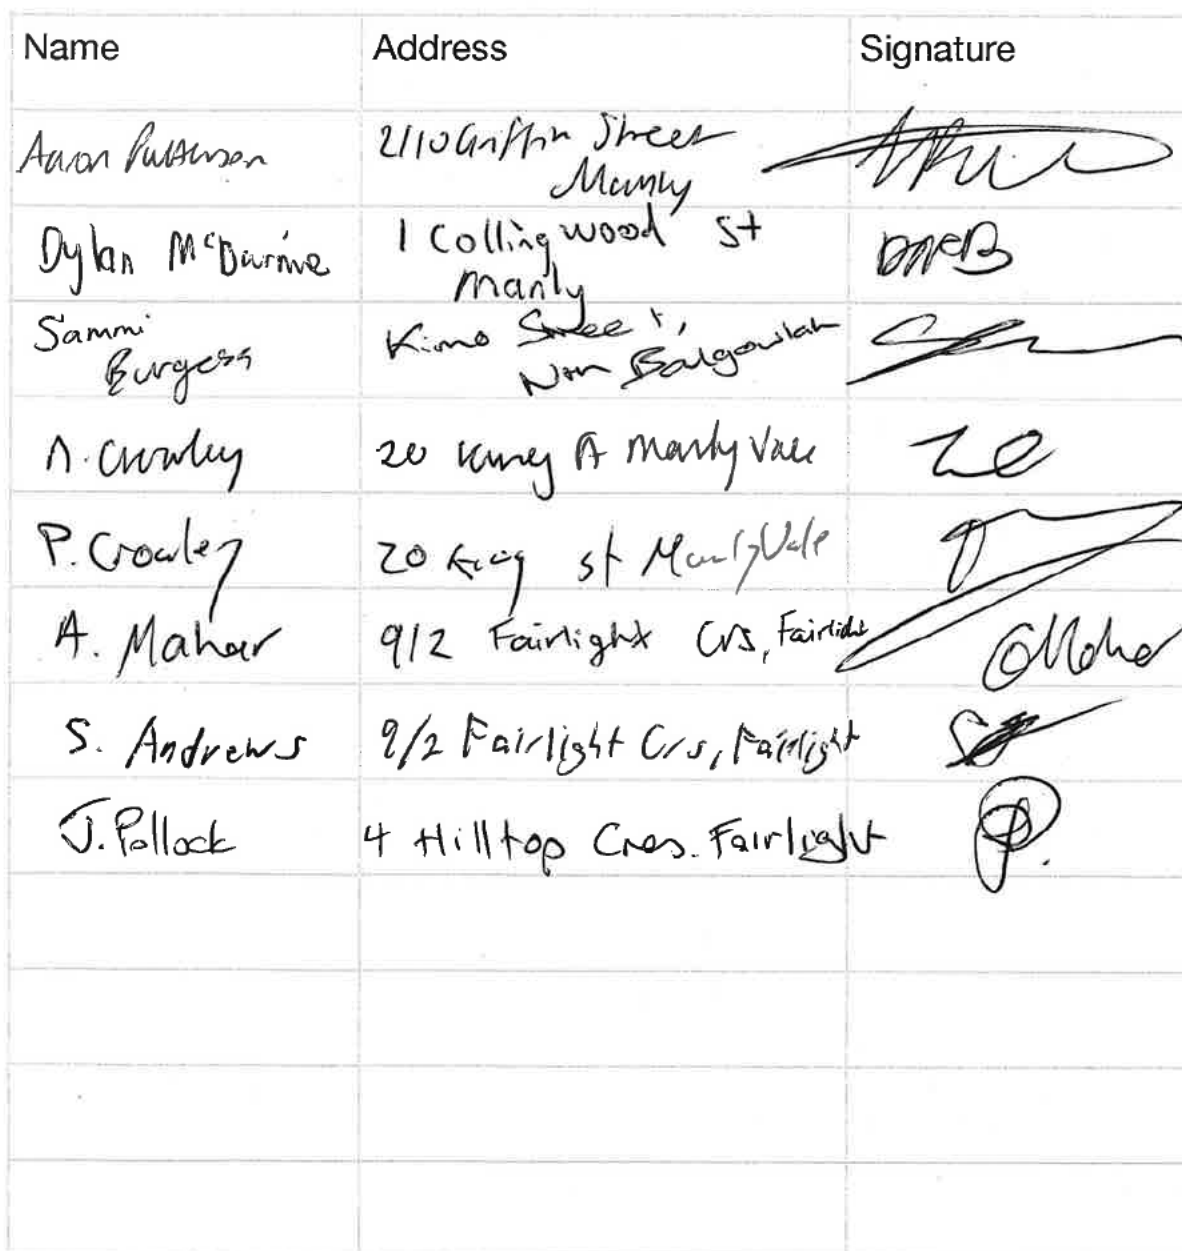 Name Address Signature
Aaron Patterson 2/10 Griffin Street
Manly
Dylan 1 Collingwood St
Manly
Sammi Kimo Street,
Burgess Balgowlah
N. Crowley 20 King St Manly Vale
P. Crowley 20 King st Manly Vale
A. Mahar 9/2 Fairlight Crs, Fairlight
S. Andrews 9/2 Fairlight Crs, Fairlight
J. Pollock 4 Hilltop Cres. Fairlight